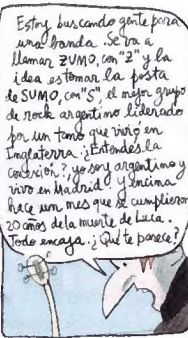 Estoy buscando gente para
una banda. Se va a
llamar ZUMO, con "Z" y la
idea es tomar la posta
de SUMO, con "S", el mejor grupo
de rock argentino liderado
por un tano que vivió en
Inglaterra. ¿Entendés la
conexión?, yo soy argentino y
vivo en Madrid y encima
hace un mes que se cumplieron
20 años de la muerte de Luca.
Todo encaja. ¿Qué te parece?